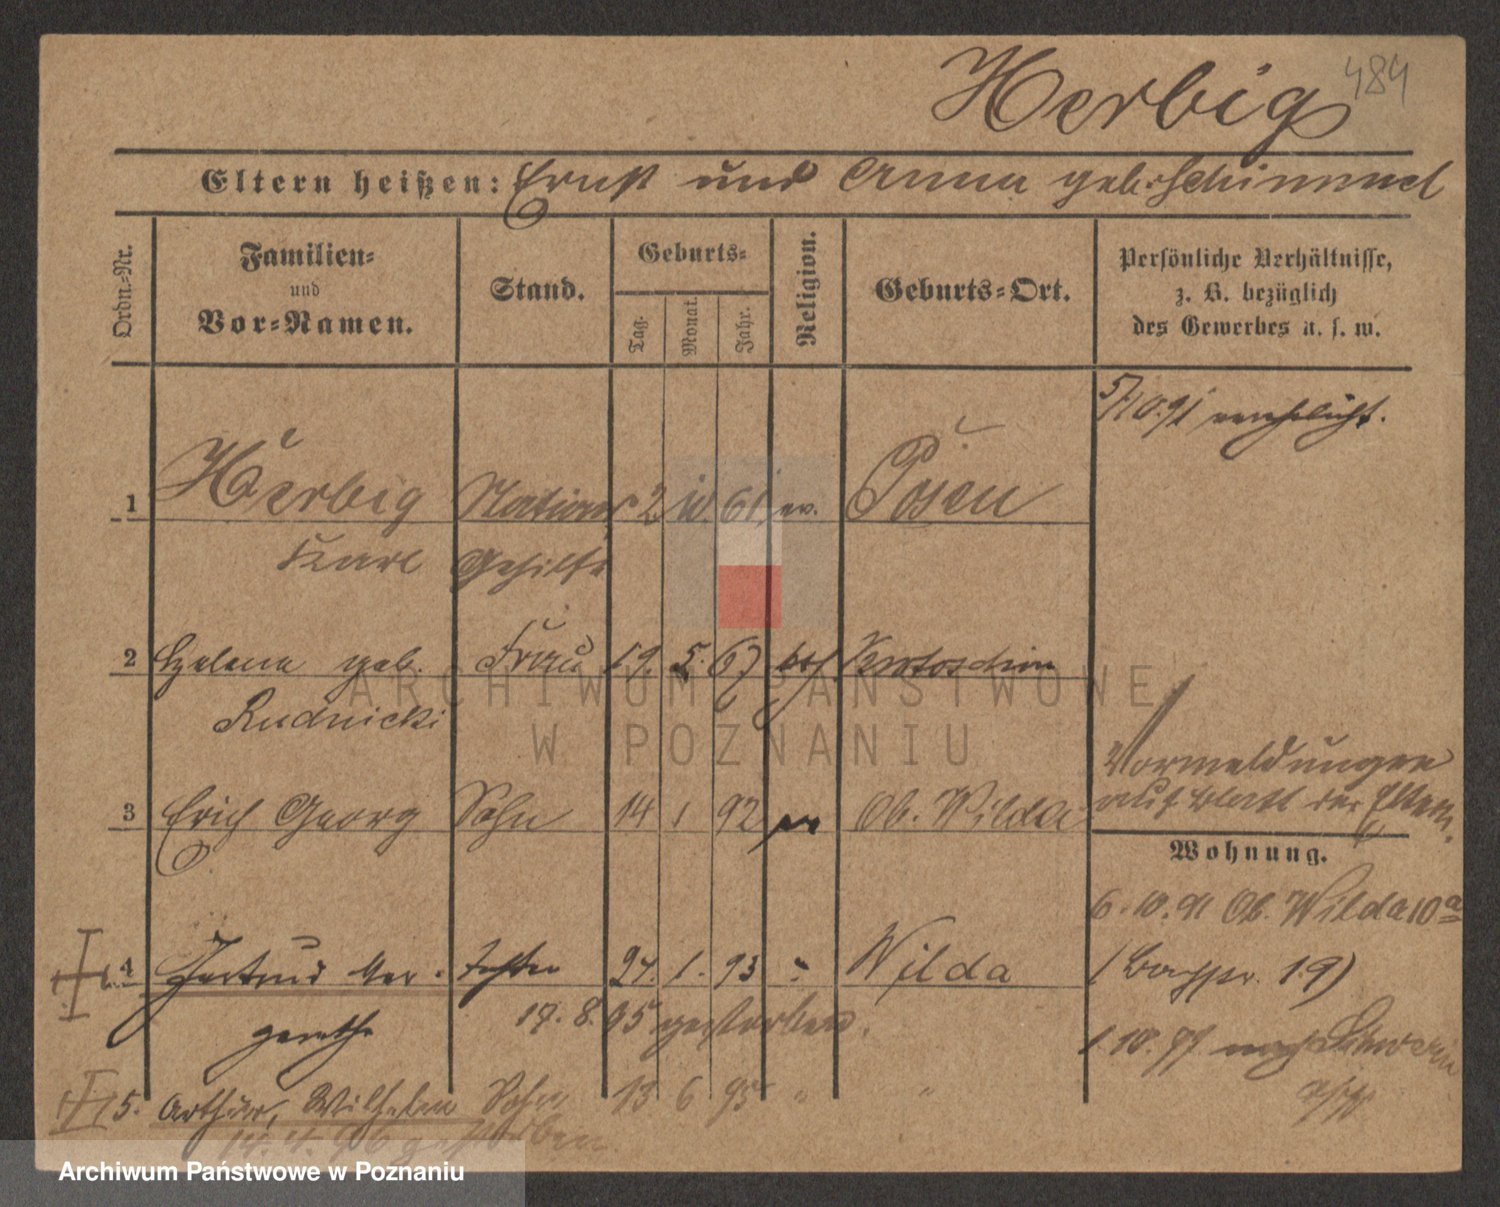 Herbig
484
Eltern heißen: Ernst und Anna geb. Schimmel
Ordn.-Nr.
Familien- und Vor-Namen.
Stand.
Geburts-
Tag. Monat. Jahr.
Religion.
Geburts-Ort.
Persönliche Verhältnisse,
z. B. bezüglich
des Gewerbes u. s. w.
5/10.91 verehelicht.
1 Herbig 2 10. 61. ev. Posen
Karl Gehilfe
2 Helena geb. Frau 19. 5. 67 Krotoschin
Rudnicki
Vormeldungen
auf Blatt der Eltern.
3 Erich Georg Sohn 14 1 92 ev Ob. Wilda
Wohnung.
6. 10. 91 Ob. Wilda 10a
4 Gertrud Mar- Tochter 27. 1. 93 " Wilda
garethe 17. 8. 95 gestorben.
1. 10. 97 nach
5. Arthur, Wilhelm Sohn 13 6 95 " "
14. 4. 96 gestorben
ARCHIWUM PAŃSTWOWE
W POZNANIU
Archiwum Państwowe w Poznaniu